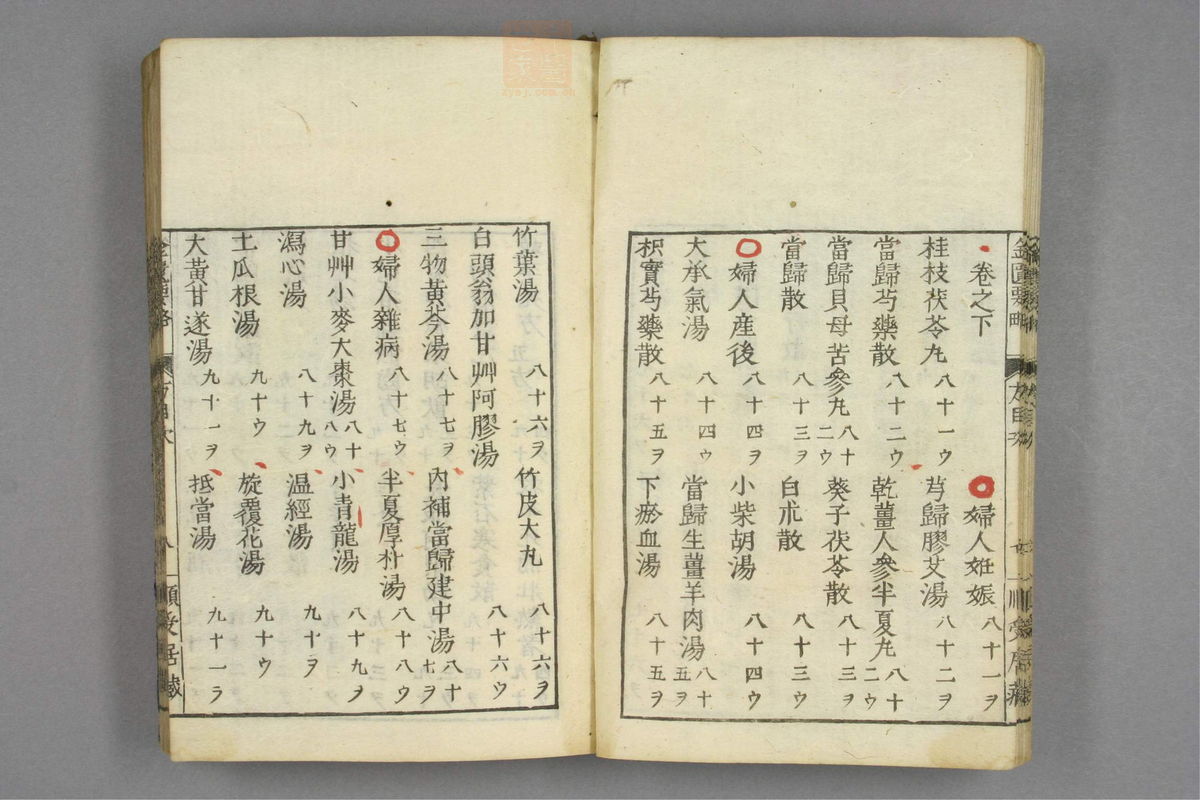 金匱要略 方目次 順受居藏
卷之下 婦人妊娠 八十一ヲ
桂枝茯苓丸 八十一ウ 芎歸膠艾湯 八十二ヲ
當歸芍藥散 八十二ウ 乾薑人參半夏丸 八十二ウ
當歸貝母苦參丸 八十二ウ 葵子茯苓散 八十三ヲ
當歸散 八十三ヲ 白朮散 八十三ウ
婦人産後 八十四ヲ 小柴胡湯 八十四ウ
大承氣湯 八十四ウ 當歸生薑羊肉湯 八十五ヲ
枳實芍藥散 八十五ヲ 下瘀血湯 八十五ヲ
竹葉湯 八十六ヲ 竹皮大丸 八十六ヲ
白頭翁加甘艸阿膠湯 八十六ウ
三物黄芩湯 八十七ヲ 內補當歸建中湯 八十七ヲ
婦人雜病 八十七ウ 半夏厚朴湯 八十八ウ
甘艸小麥大棗湯 八十八ウ 小青龍湯 八十九ヲ
瀉心湯 八十九ヲ 温經湯 九十ヲ
土瓜根湯 九十ウ 旋覆花湯 九十ウ
大黄甘遂湯 九十一ヲ 抵當湯 九十一ヲ
金匱要略 方目次 八 順受居藏